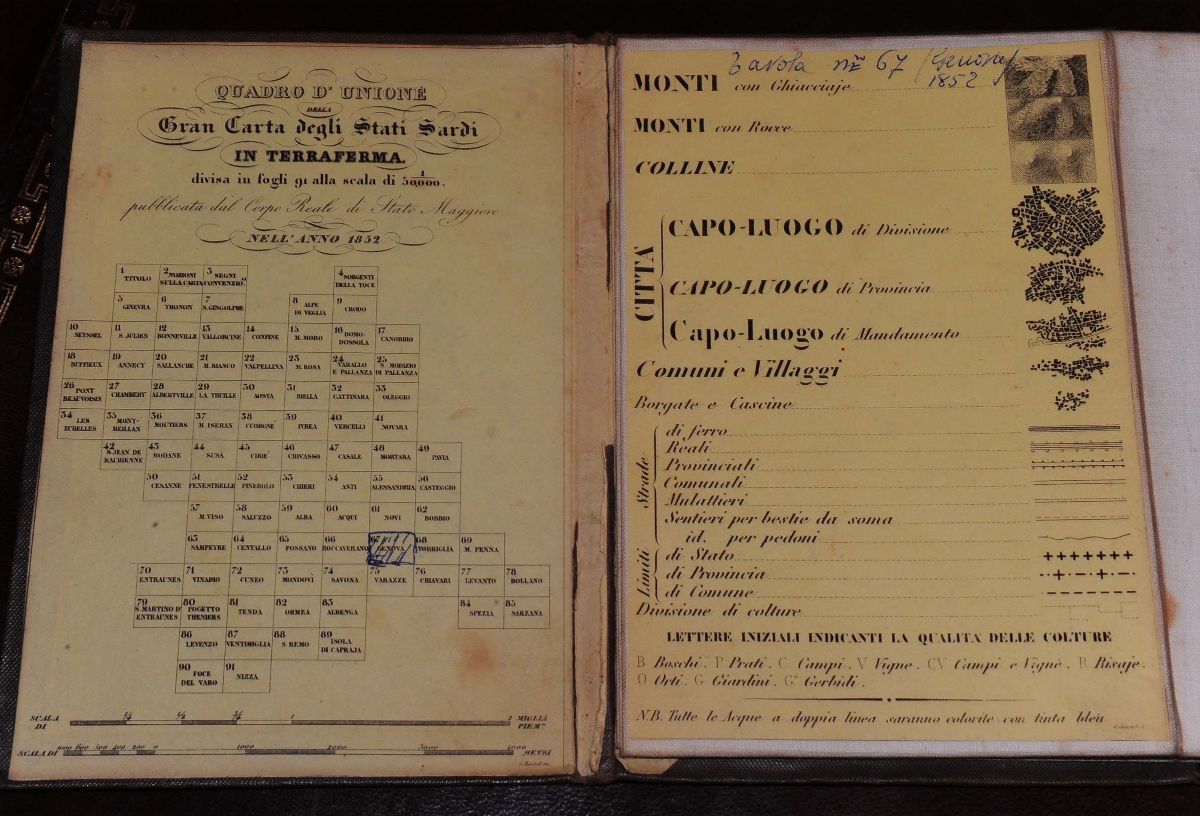 QUADRO D'UNIONE
DELLA
Gran Carta degli Stati Sardi
IN TERRAFERMA.
divisa in fogli 91 alla scala di 1/50,000.
pubblicata dal Corpo Reale di Stato Maggiore
NELL'ANNO 1852
1 TITOLO 2 NOZIONI SULLA CARTA 3 SEGNI CONVENZIO.li 4 SORGENTI DELLA TOCE
5 GINEVRA 6 THONON 7 S.GINGOLPHE 8 ALPE DI VEGLIA 9 CRODO
10 SEYSSEL 11 S.JULIEN 12 BONNEVILLE 13 VALLORCINE 14 CONFINE 15 M.MORO 16 DOMO-DOSSOLA 17 CANOBBIO
18 RUFFIEUX 19 ANNECY 20 SALLANCHE 21 M.BIANCO 22 VALPELLINA 23 M.ROSA 24 VARALLO E PALLANZA 25 S.MORIZIO DI PALLANZA
26 PONT BEAUVOISIN 27 CHAMBERY 28 ALBERTVILLE 29 LA THUILLE 30 AOSTA 31 BIELLA 32 GATTINARA 33 OLEGGIO
34 LES ECHELLES 35 MONT-MEILLAN 36 MOUTIERS 37 M.ISERAN 38 CUORGNÈ 39 IVREA 40 VERCELLI 41 NOVARA
42 S.JEAN DE MAURIENNE 43 MODANE 44 SUSA 45 CIRIE' 46 CHIVASSO 47 CASALE 48 MORTARA 49 PAVIA
50 CESANNE 51 FENESTRELLE 52 PINEROLO 53 CHIERI 54 ASTI 55 ALESSANDRIA 56 CASTEGGIO
57 M.VISO 58 SALUZZO 59 ALBA 60 ACQUI 61 NOVI 62 BOBBIO
63 SAMPEYRE 64 CENTALLO 65 FOSSANO 66 ROCCAVERANO 67 GENOVA 68 TORRIGLIA 69 M.PENNA
70 ENTRAUNES 71 VINADIO 72 CUNEO 73 MONDOVÌ 74 SAVONA 75 VARAZZE 76 CHIAVARI 77 LEVANTO 78 BOLLANO
79 S.MARTINO D'ENTRAUNES 80 POGETTO THENIERS 81 TENDA 82 ORMEA 83 ALBENGA 84 SPEZIA 85 SARZANA
86 LEVENZO 87 VENTIMIGLIA 88 S.REMO 89 ISOLA DI CAPRAJA
90 FOCE DEL VARO 91 NIZZA
SCALA DI 1/4 1/2 3/4 1 2 MIGLIA PIEM.te
SCALA DI 1000 800 600 400 200 0 1000 2000 3000 4000 METRI
Tavola nº 67 (Genova)
1852
MONTI con Ghiacciaje
MONTI con Rocce
COLLINE
CITTÀ
CAPO-LUOGO di Divisione
CAPO-LUOGO di Provincia
Capo-Luogo di Mandamento
Comuni e Villaggi
Borgate e Cascine
Strade
di ferro
Reali
Provinciali
Comunali
Mulattieri
Sentieri per bestie da soma
id. per pedoni
Limiti
di Stato
di Provincia
di Comune
Divisione di colture
LETTERE INIZIALI INDICANTI LA QUALITÀ DELLE COLTURE
B Boschi. P Prati. C Campi. V Vigne. CV Campi e Vigne. R Risaje.
O Orti. G Giardini. Gº Gerbidi.
N.B. Tutte le Acque a doppia linea saranno colorite con tinta bleu